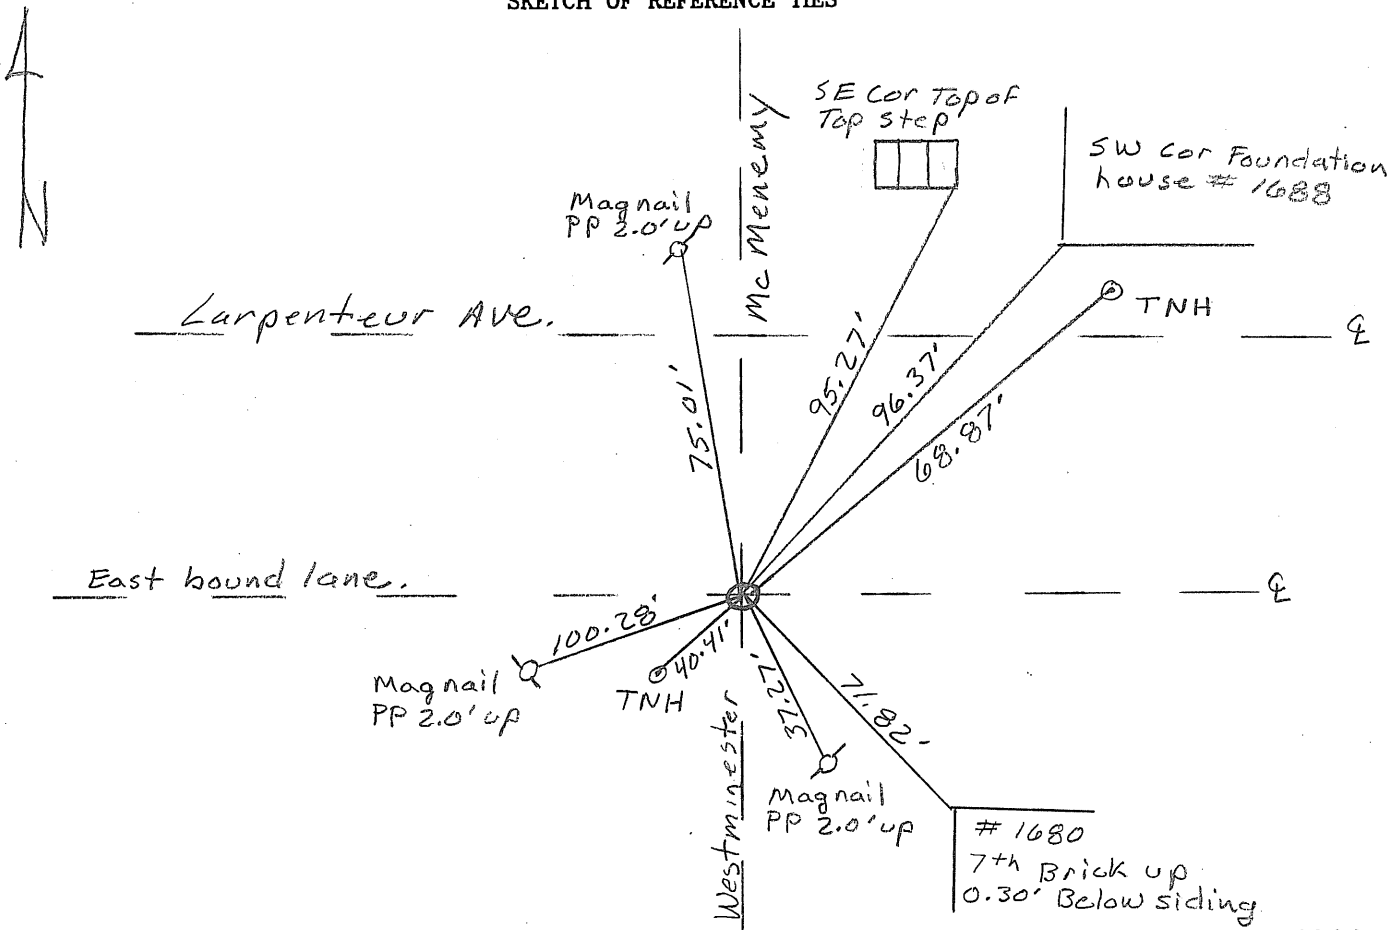 SKETCH OF REFERENCE TIES
N
SE Cor Top of
Top step
SW Cor Foundation
house # 1688
Mc Menemy
Magnail
PP 2.0' up
TNH
Larpenteur Ave.
℄
75.01'
95.27'
96.37'
68.87'
East bound lane.
℄
100.28'
40.41'
37.27'
71.82'
Magnail
PP 2.0' up
TNH
Westminester
Magnail
PP 2.0' up
# 1680
7th Brick up
0.30' Below siding